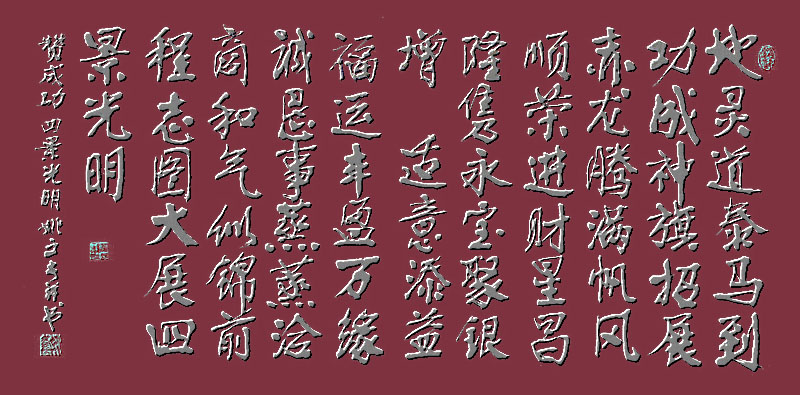 地灵道泰马到
功成神旗招展
赤龙腾满帆风
顺荣进财星昌
隆隽永宝聚银
增 适意添益
福运丰盈万缘
诚恳事蒸蒸洽
商和气似锦前
程志图大展四
景光明
赞成功四景光明 姚